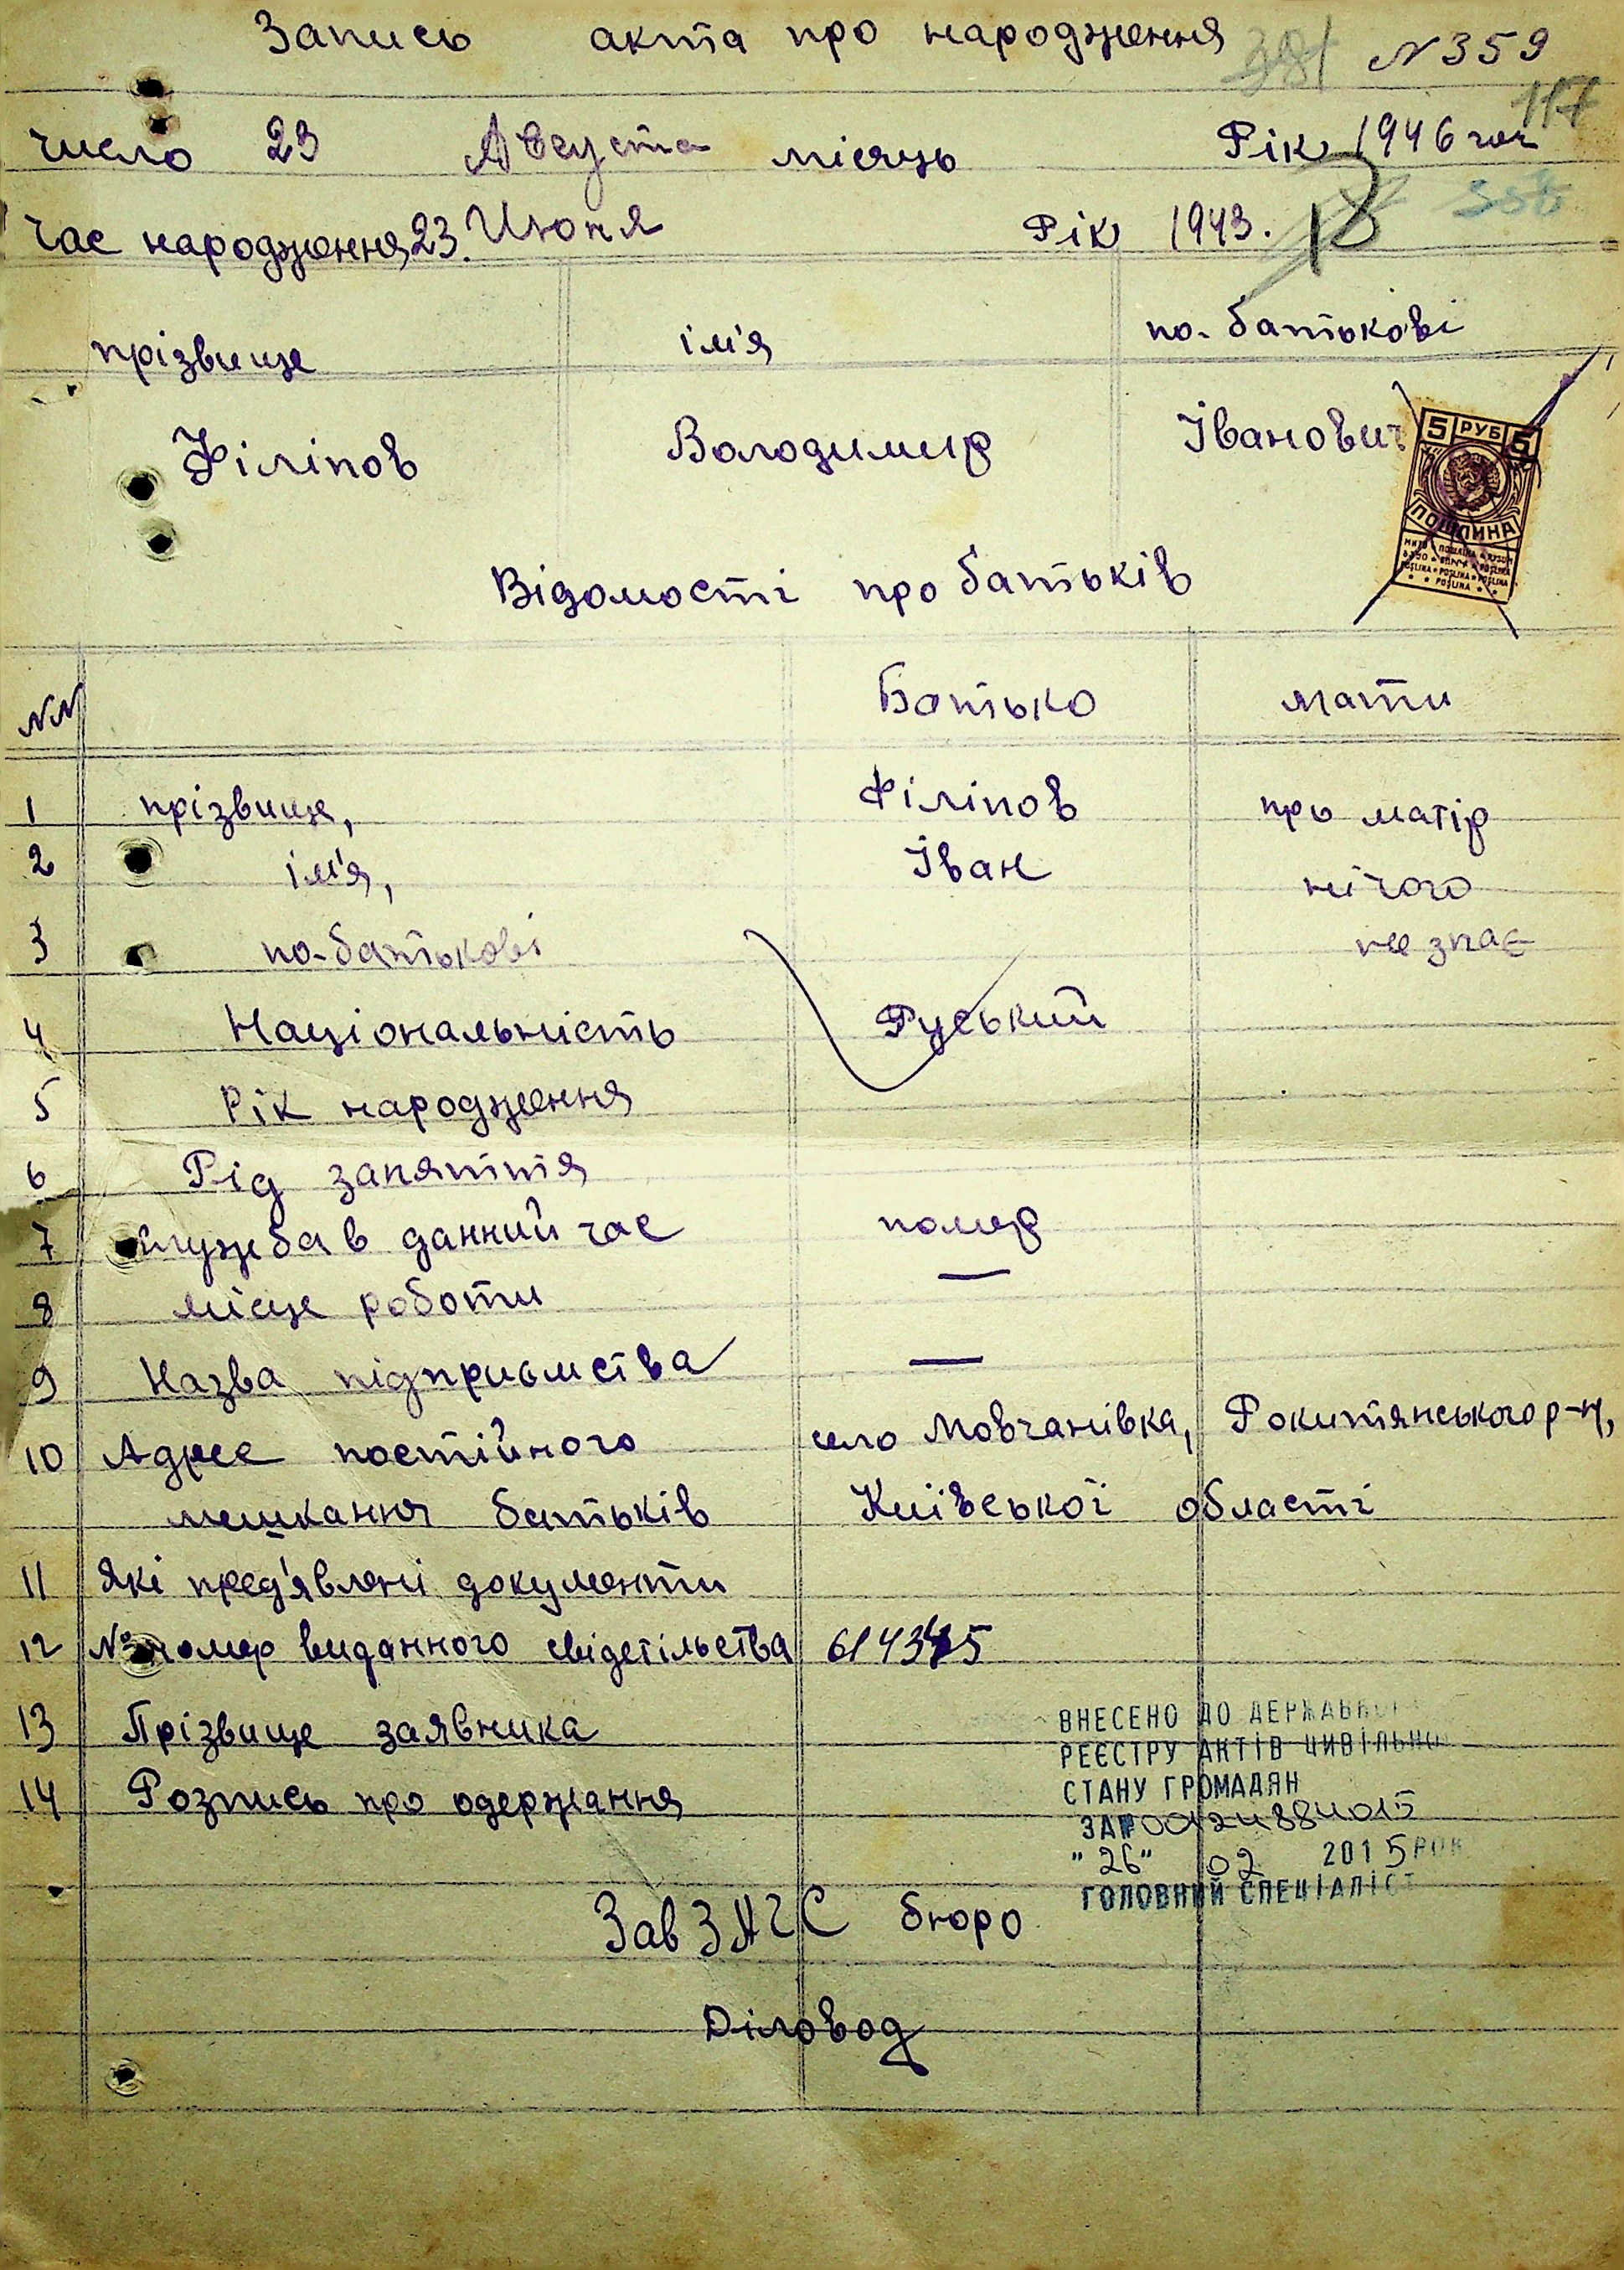 Запись акта про народження 381 N 359
117
число 23 Августа місяць Рік 1946
358
час народження 23. Июня Рік 1943. 13
прізвище ім'я по-батькові
Філіпов Володимир Іванович
5 РУБ 5
ПОШЛИНА
Відомості про батьків
NN Батько мати
1 прізвище, Філіпов про матір
2 ім'я, Іван нічого
3 по-батькові не знає
4 Національність Руський
5 Рік народження
6 Рід заняття
7 служба в данний час помер
8 місце роботи —
9 Назва підприємства —
10 Адрес постійного село Мовчанівка, Рокитянського р-н,
мешкання батьків Київської області
11 які пред'явлені документи
12 № номер виданного свідетільства 614375
13 Прізвище заявника
14 Розпись про одержання
ВНЕСЕНО ДО ДЕРЖАВНОГО
РЕЄСТРУ АКТІВ ЦИВІЛЬНО
СТАНУ ГРОМАДЯН
ЗА № 00124884015
"26" 02 2015 РОК
ГОЛОВНИЙ СПЕЦІАЛІСТ
Зав ЗАГС бюро
Діловод